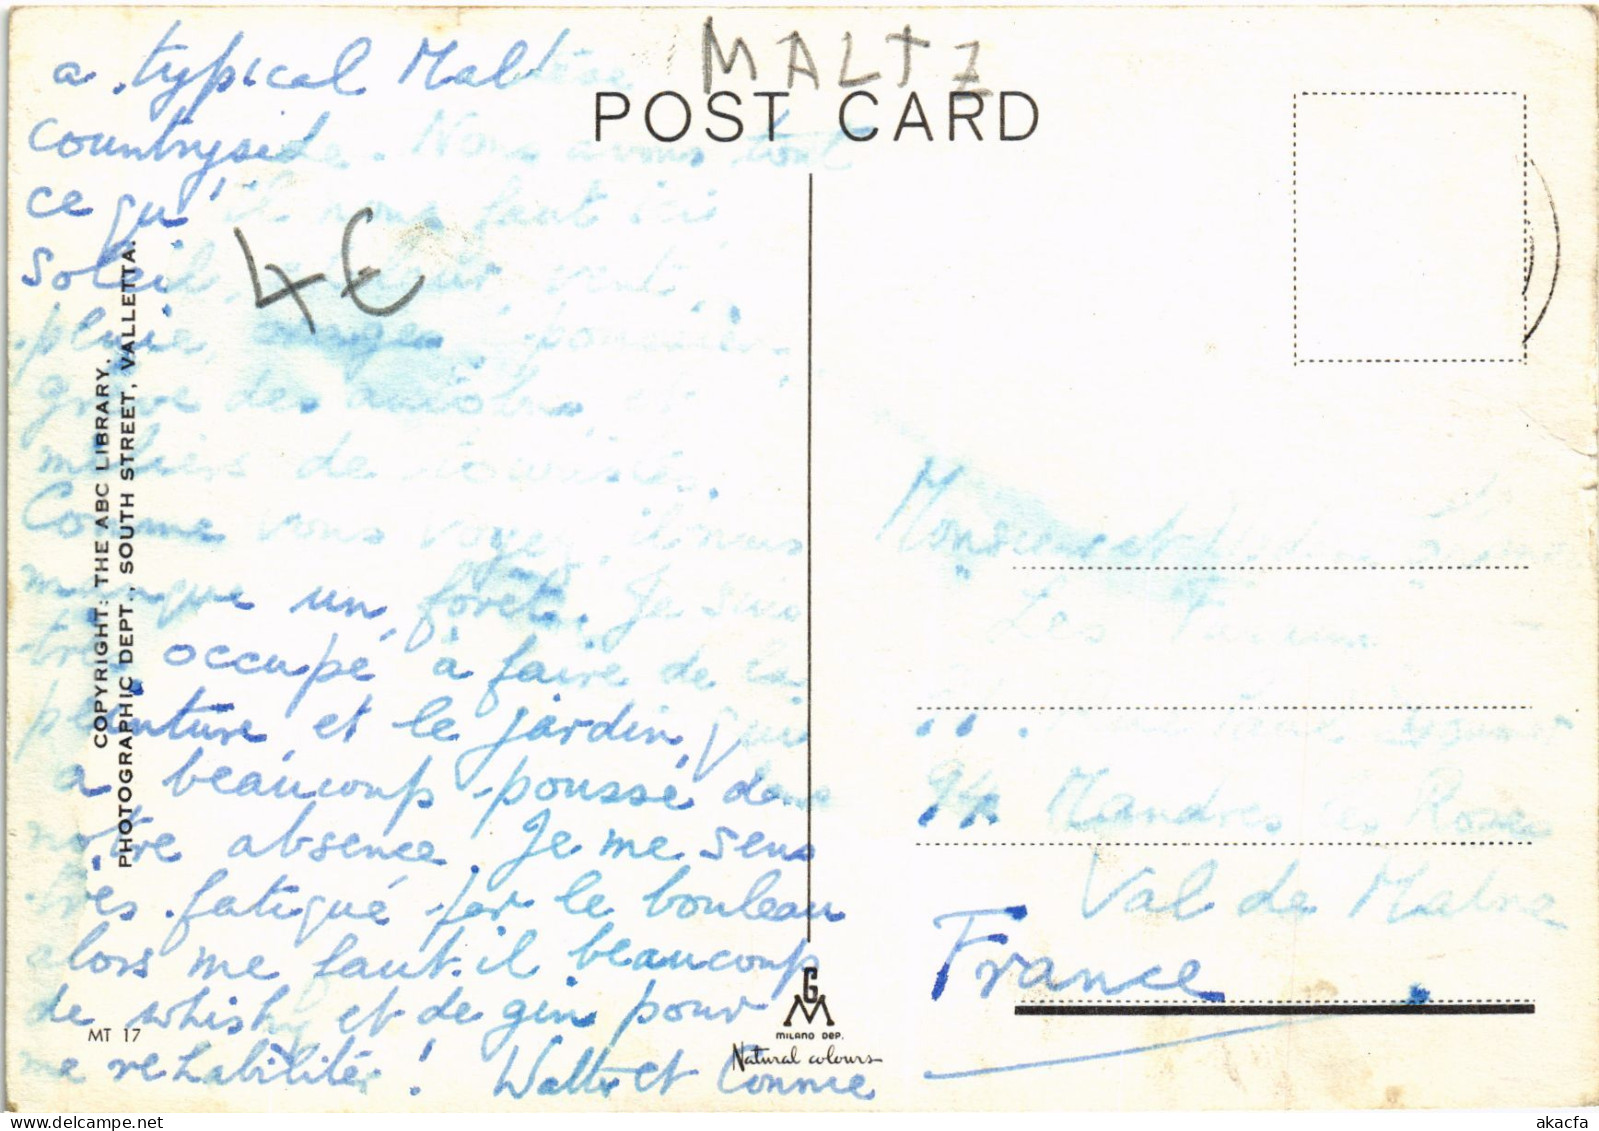 MALTZ
POST CARD
a typical Maltese
countryside. Nous avons tout
ce qu'il nous faut ici
soleil, chaleur, vent,
pluie, orages, poussière,
grève des autobus et
milliers de touristes.
Comme vous voyez, il nous
manque un forêt. Je suis
très occupé à faire de la
peinture et le jardin qui
a beaucoup poussé dans
notre absence. Je me sens
très fatigué par le bouleau
alors me faut-il beaucoup
de whisky et de gin pour
me rehabilitér! Walter et Connie
4€
COPYRIGHT: THE ABC LIBRARY.
PHOTOGRAPHIC DEPT., SOUTH STREET, VALLETTA.
MT 17
GM
MILANO DEP.
Natural colours
Monsieur et Madame
Les
rue
94 Mandres les Roses
Val de Marne
France
akacfa